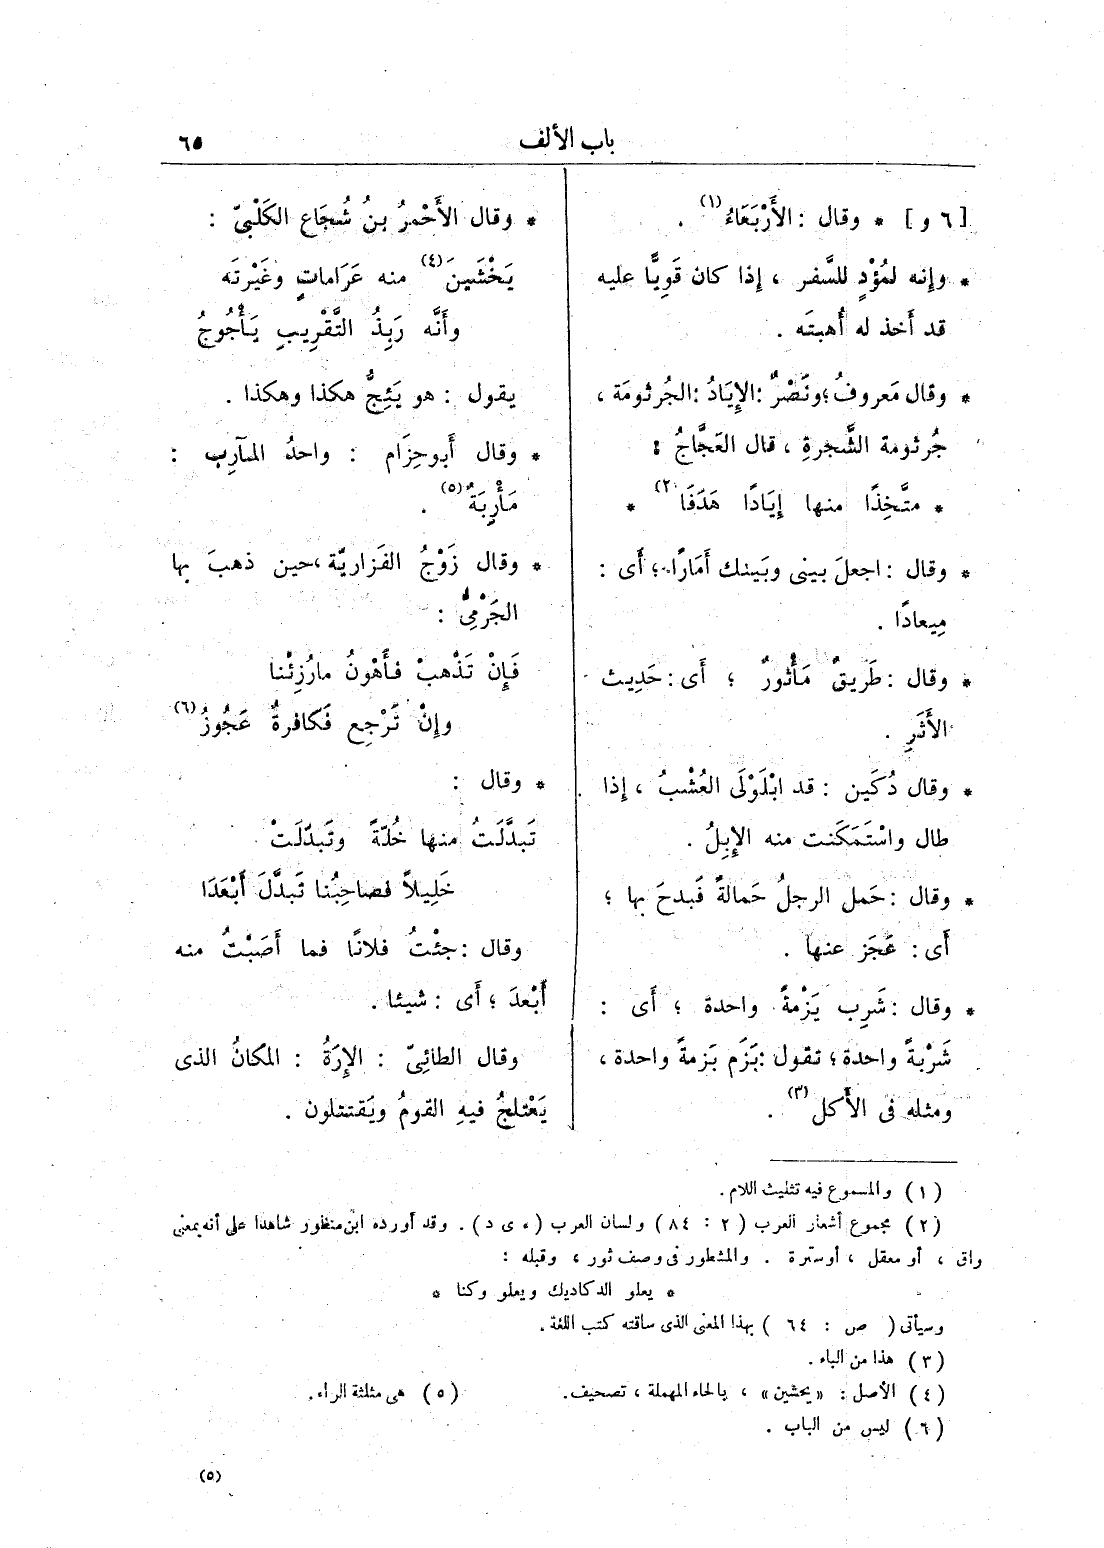 باب الألف
٦٥
[ ٦ و ] * وقال : الأَرْبَعَاءُ (١) .
* وإنه لمُؤْدٍ للسَّفر ، إذا كان قَوِيًّا عليه
قد أَخذ له أُهبتَه .
* وقال مَعروفُ ؛ ونَصْرٌ : الإِيَادُ : الجُرثومَة ،
جُرثومة الشَّجرةِ ، قال العَجَّاجُ :
* متَّخِذًا منها إيَادًا هَدَفَا (٢) *
* وقال : اجعلَ بينى وبَينك أَمَارًا ؛ أَى :
مِيعادًا .
* وقال : طَرِيقٌ مَأْثورٌ ؛ أَى : حَدِيث
الأَثَرِ .
* وقال دُكَين : قد ابْلَوْلَى العُشْبُ ، إذا
طال واسْتَمَكَنت منه الإِبِلُ .
* وقال : حَمل الرجلُ حَمالةً فَبدحَ بها ؛
أَى : عَجَز عنها .
* وقال : شَرِب يَزْمةً واحدة ؛ أَى :
شَرْبةً واحدة ؛ تقول : بَزَم بَزمةً واحدة ،
ومثله فى الأَكل (٣) .
* وقال الأَحْمرُ بنُ شُجَاع الكَلْبىّ :
يَخْشَينَ (٤) منه عَرَاماتٍ وغَيْرتَه
وأَنَّه رَبِذُ التَّقْرِيبِ يَأْجُوجُ
يقول : هو يَئِجُّ هكذا وهكذا .
* وقال أَبوحِزَام : واحدُ المآرِب :
مَأْرِبَةٌ (٥) .
* وقال زَوْجُ الفَزاريّة ، حين ذهبَ بها
الجَرْمىُّ :
فَإِنْ تَذْهبْ فأَهْونُ مارُزِئْنا
وإنْ تَرْجِع فَكافرةٌ عَجُوزُ (٦)
* وقال :
تَبدَّلَتُ منها خُلّةً وتَبدّلَتْ
خَلِيلاً فصاحِبُنا تَبدَّلَ أَبْعَدَا
وقال : جئْتُ فلانًا فما أَصَبْتُ منه
أَبْعدَ ؛ أَى : شيئا .
وقال الطائىّ : الإِرَةُ : المكانُ الذى
يَعْتلجُ فيهِ القومُ ويَقتتلون .
(١) والمسموع فيه تثليث اللام .
(٢) مجموع أشعار العرب ( ٢ : ٨٤ ) ولسان العرب ( ء ى د ) . وقد أورده ابن منظور شاهدا على أنه بمعنى
واق ، أو معقل ، أوسترة . والمشطور فى وصف ثور ، وقبله :
* يعلو الدكاديك ويعلو وكنا *
وسيأتى ( ص : ٦٤ ) بهذا المعنى الذى ساقته كتب اللغة .
(٣) هذا من الباء .
(٤) الأصل : « يحشين » ، بالحاء المهملة ، تصحيف . (٥) هى مثلثة الراء .
(٦) ليس من الباب .
(٥)